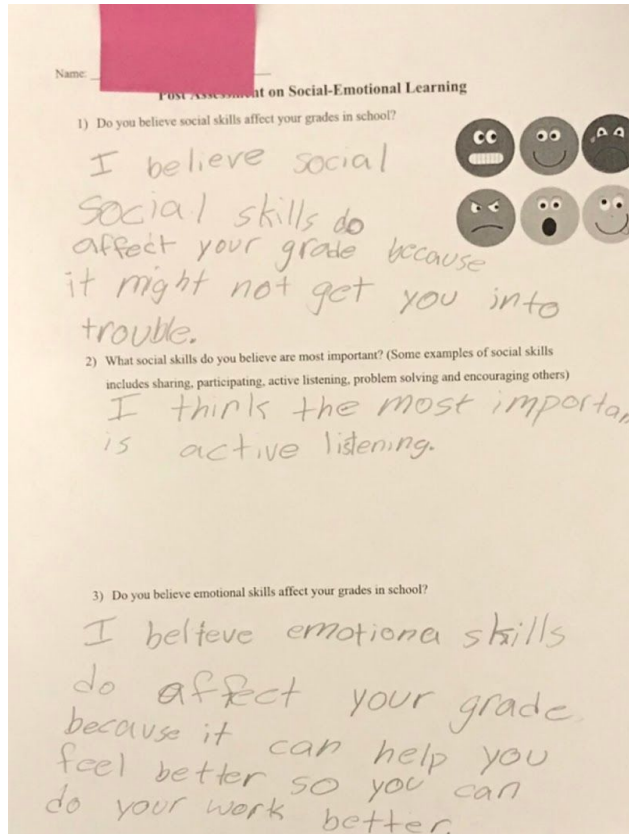 Name:
Post Assessment on Social-Emotional Learning
1) Do you believe social skills affect your grades in school?
I believe social
social skills do
affect your grade because
it might not get you into
trouble.
2) What social skills do you believe are most important? (Some examples of social skills
includes sharing, participating, active listening, problem solving and encouraging others)
I think the most importan
is active listening.
3) Do you believe emotional skills affect your grades in school?
I believe emotiona skills
do affect your grade
because it can help you
feel better so you can
do your work better.